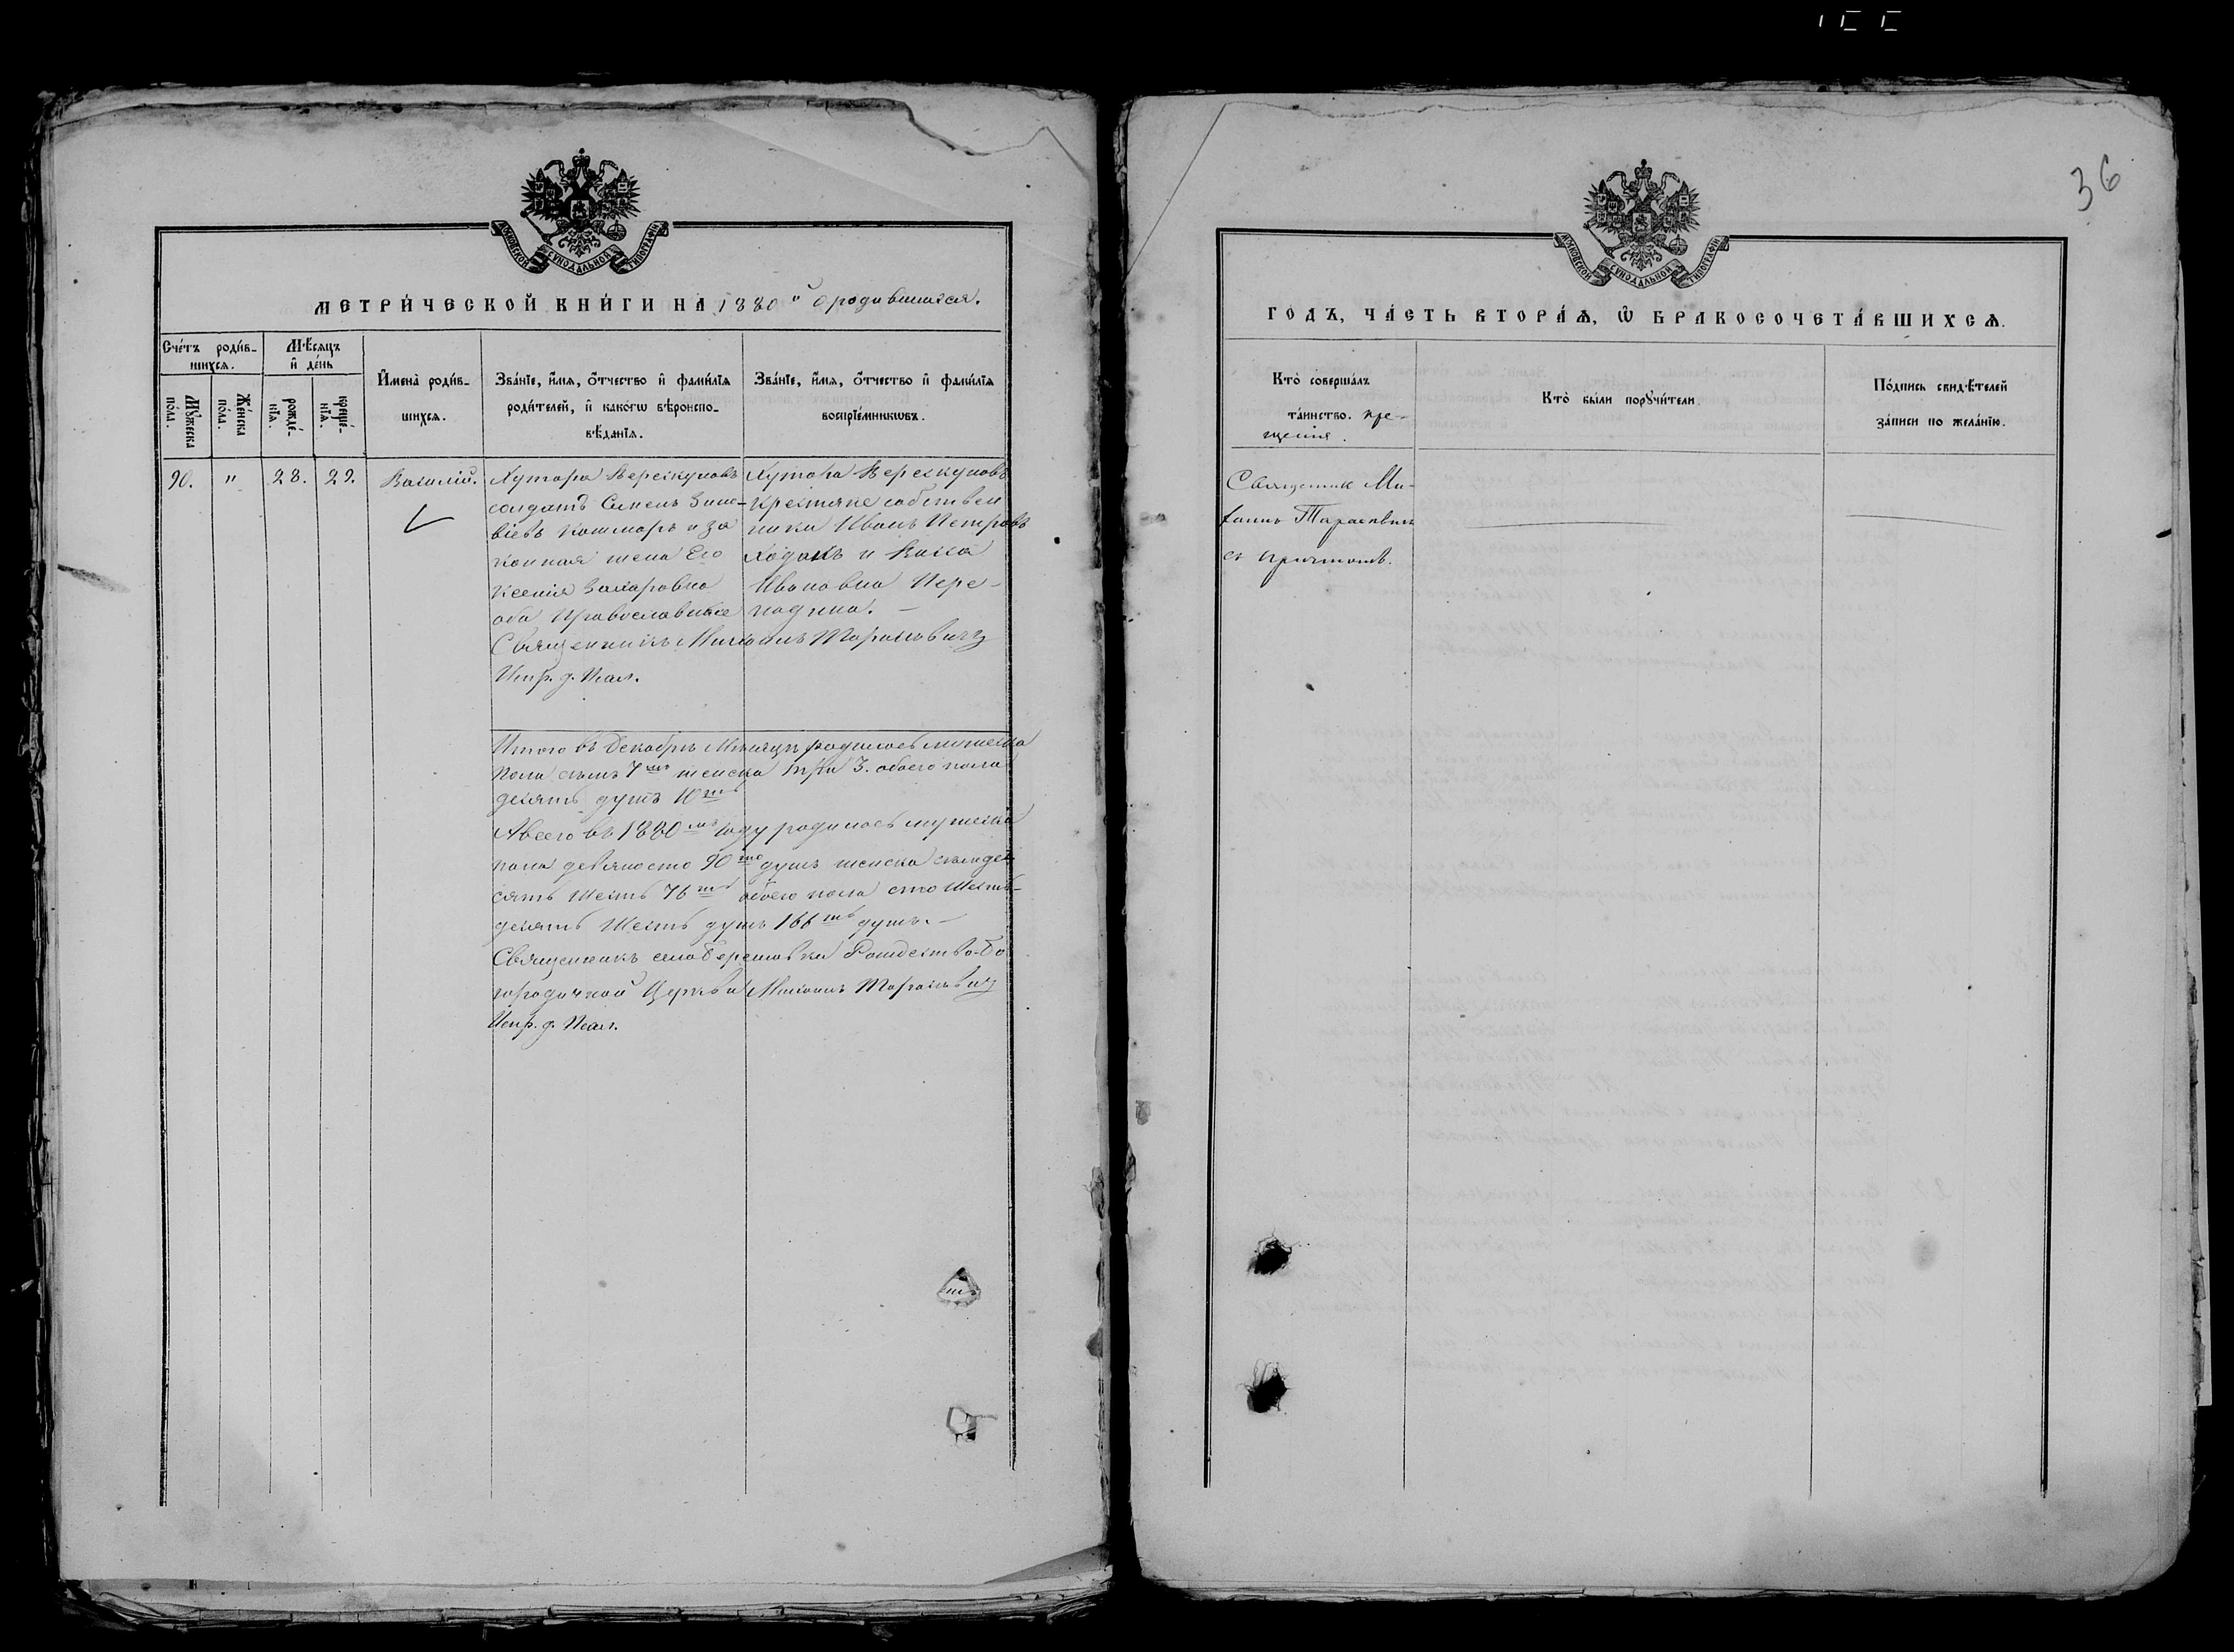 36
МОСКОВСКОЙ СѴНОДАЛЬНОЙ ТИПОГРАФІИ
МЕТРИ́ЧЕСКОЙ КНИ́ГИ НА 1880 й о родившихся.
Сче́тъ роди́в-
шихся.
Мѣ́сяцъ
и҆ де́нь
Мꙋ́жеска по́ла.
Же́нска по́ла.
рожде́-нїѧ.
креще́-нїѧ.
И҆мена̀ роди́в-
шихся.
Зва́нїе, и҆́мѧ, ѻ҆́тчество и҆ фами́лїѧ
роди́телей, и҆ како́гѡ вѣроиспо-
вѣ́данїѧ.
Зва́нїе, и҆́мѧ, ѻ҆́тчество и҆ фами́лїѧ
воспрїе́мникѡвъ.
90. " 28. 29. Василій.
Хутора Верескуновъ
солдатъ Семенъ Зино-
віевъ Кашмаръ и за
конная жена Его
Ксенія Захаровна
оба Православные
Хутора Верескуновъ
крестяне собствен
ники Иванъ Петровъ
Ходакъ и
Ивановна Пере-
Священникъ Михаилъ Тарасевичъ
Испр. д. Псал.
Итого въ Декабрѣ Мѣсяцѣ родилось мужеска
пола семь 7мь женска три 3. обоего пола
десять душъ 10ть
А всего въ 1880мъ году родилось мужеска
пола девяносто 90то душъ женска семьде
сятъ шесть 76ть обоего пола сто шесть-
десятъ шесть душъ 166ть душъ.
Священникъ села Рождество-Бо
городичной Церкви Михаилъ Тарасевичъ
Испр. д. Псал.
МОСКОВСКОЙ СѴНОДАЛЬНОЙ ТИПОГРАФІИ
ГОДЪ, ЧА́СТЬ ВТОРА́Ѧ, Ѽ БРАКОСОЧЕТА́ВШИХСѦ.
Кто̀ соверша́лъ
та́инство. кре-
щенія.
Кто̀ бы́ли порꙋчи́тели
По́дпись свидѣ́телей
за́писи по жела́нїю.
Священник Ми-
хаилъ Тарасевичъ
съ причтомъ.